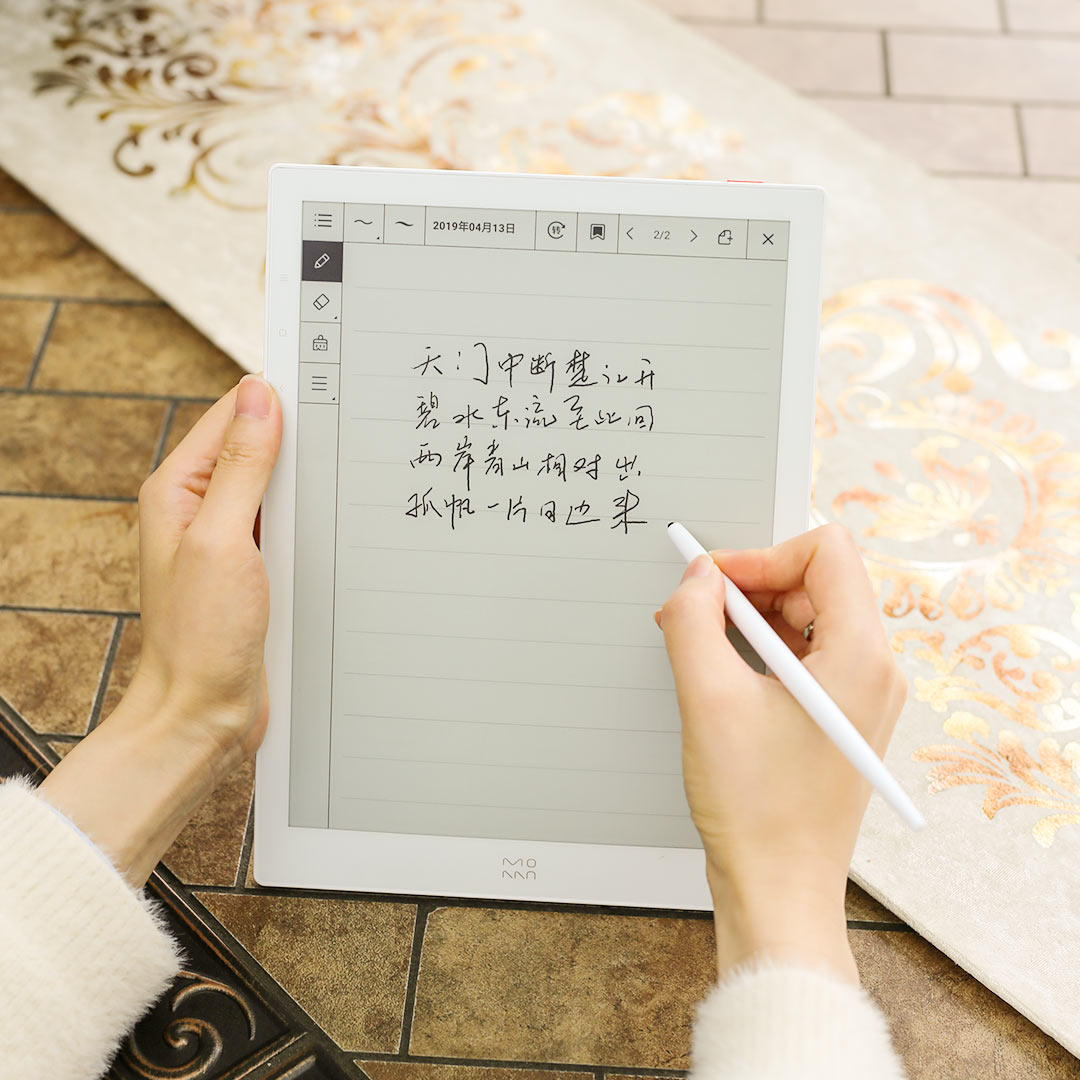 2019年04月13日 转 2/2
天门中断楚江开
碧水东流至此回
两岸青山相对出
孤帆一片日边来
MO
AAN